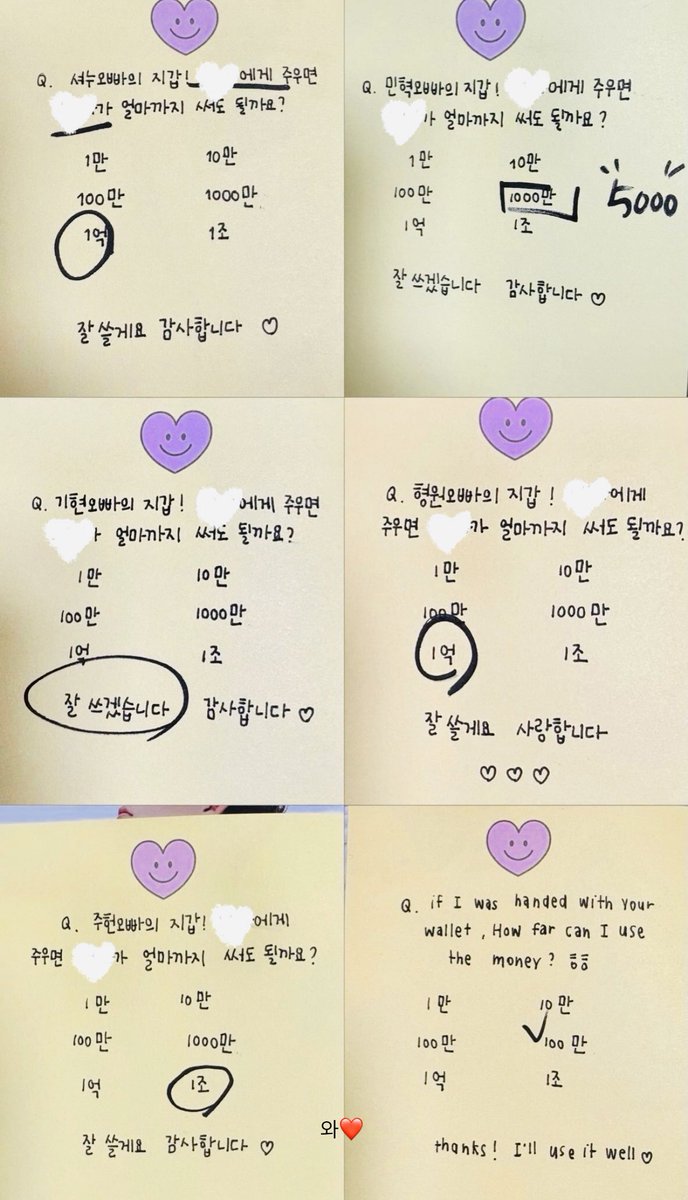 Q. 셔누오빠의 지갑! 에게 주우면
가 얼마까지 써도 될까요?
1만 10만
100만 1000만
1억 1조
잘 쓸게요 감사합니다 ♡
Q. 민혁오빠의 지갑! 에게 주우면
가 얼마까지 써도 될까요?
1만 10만
100만 1000만 5000
1억 1조
잘 쓰겠습니다 감사합니다 ♡
Q. 기현오빠의 지갑! 에게 주우면
가 얼마까지 써도 될까요?
1만 10만
100만 1000만
1억 1조
잘 쓰겠습니다 감사합니다 ♡
Q. 형원오빠의 지갑! 에게
주우면 가 얼마까지 써도 될까요?
1만 10만
100만 1000만
1억 1조
잘 쓸게요 사랑합니다
♡ ♡ ♡
Q. 주헌오빠의 지갑! 에게
주우면 가 얼마까지 써도 될까요?
1만 10만
100만 1000만
1억 1조
잘 쓸게요 감사합니다 ♡
와❤️
Q. if I was handed with your
wallet, How far can I use
the money? ㅎㅎ
1만 10만
100만 100만
1억 1조
thanks! I'll use it well ♡